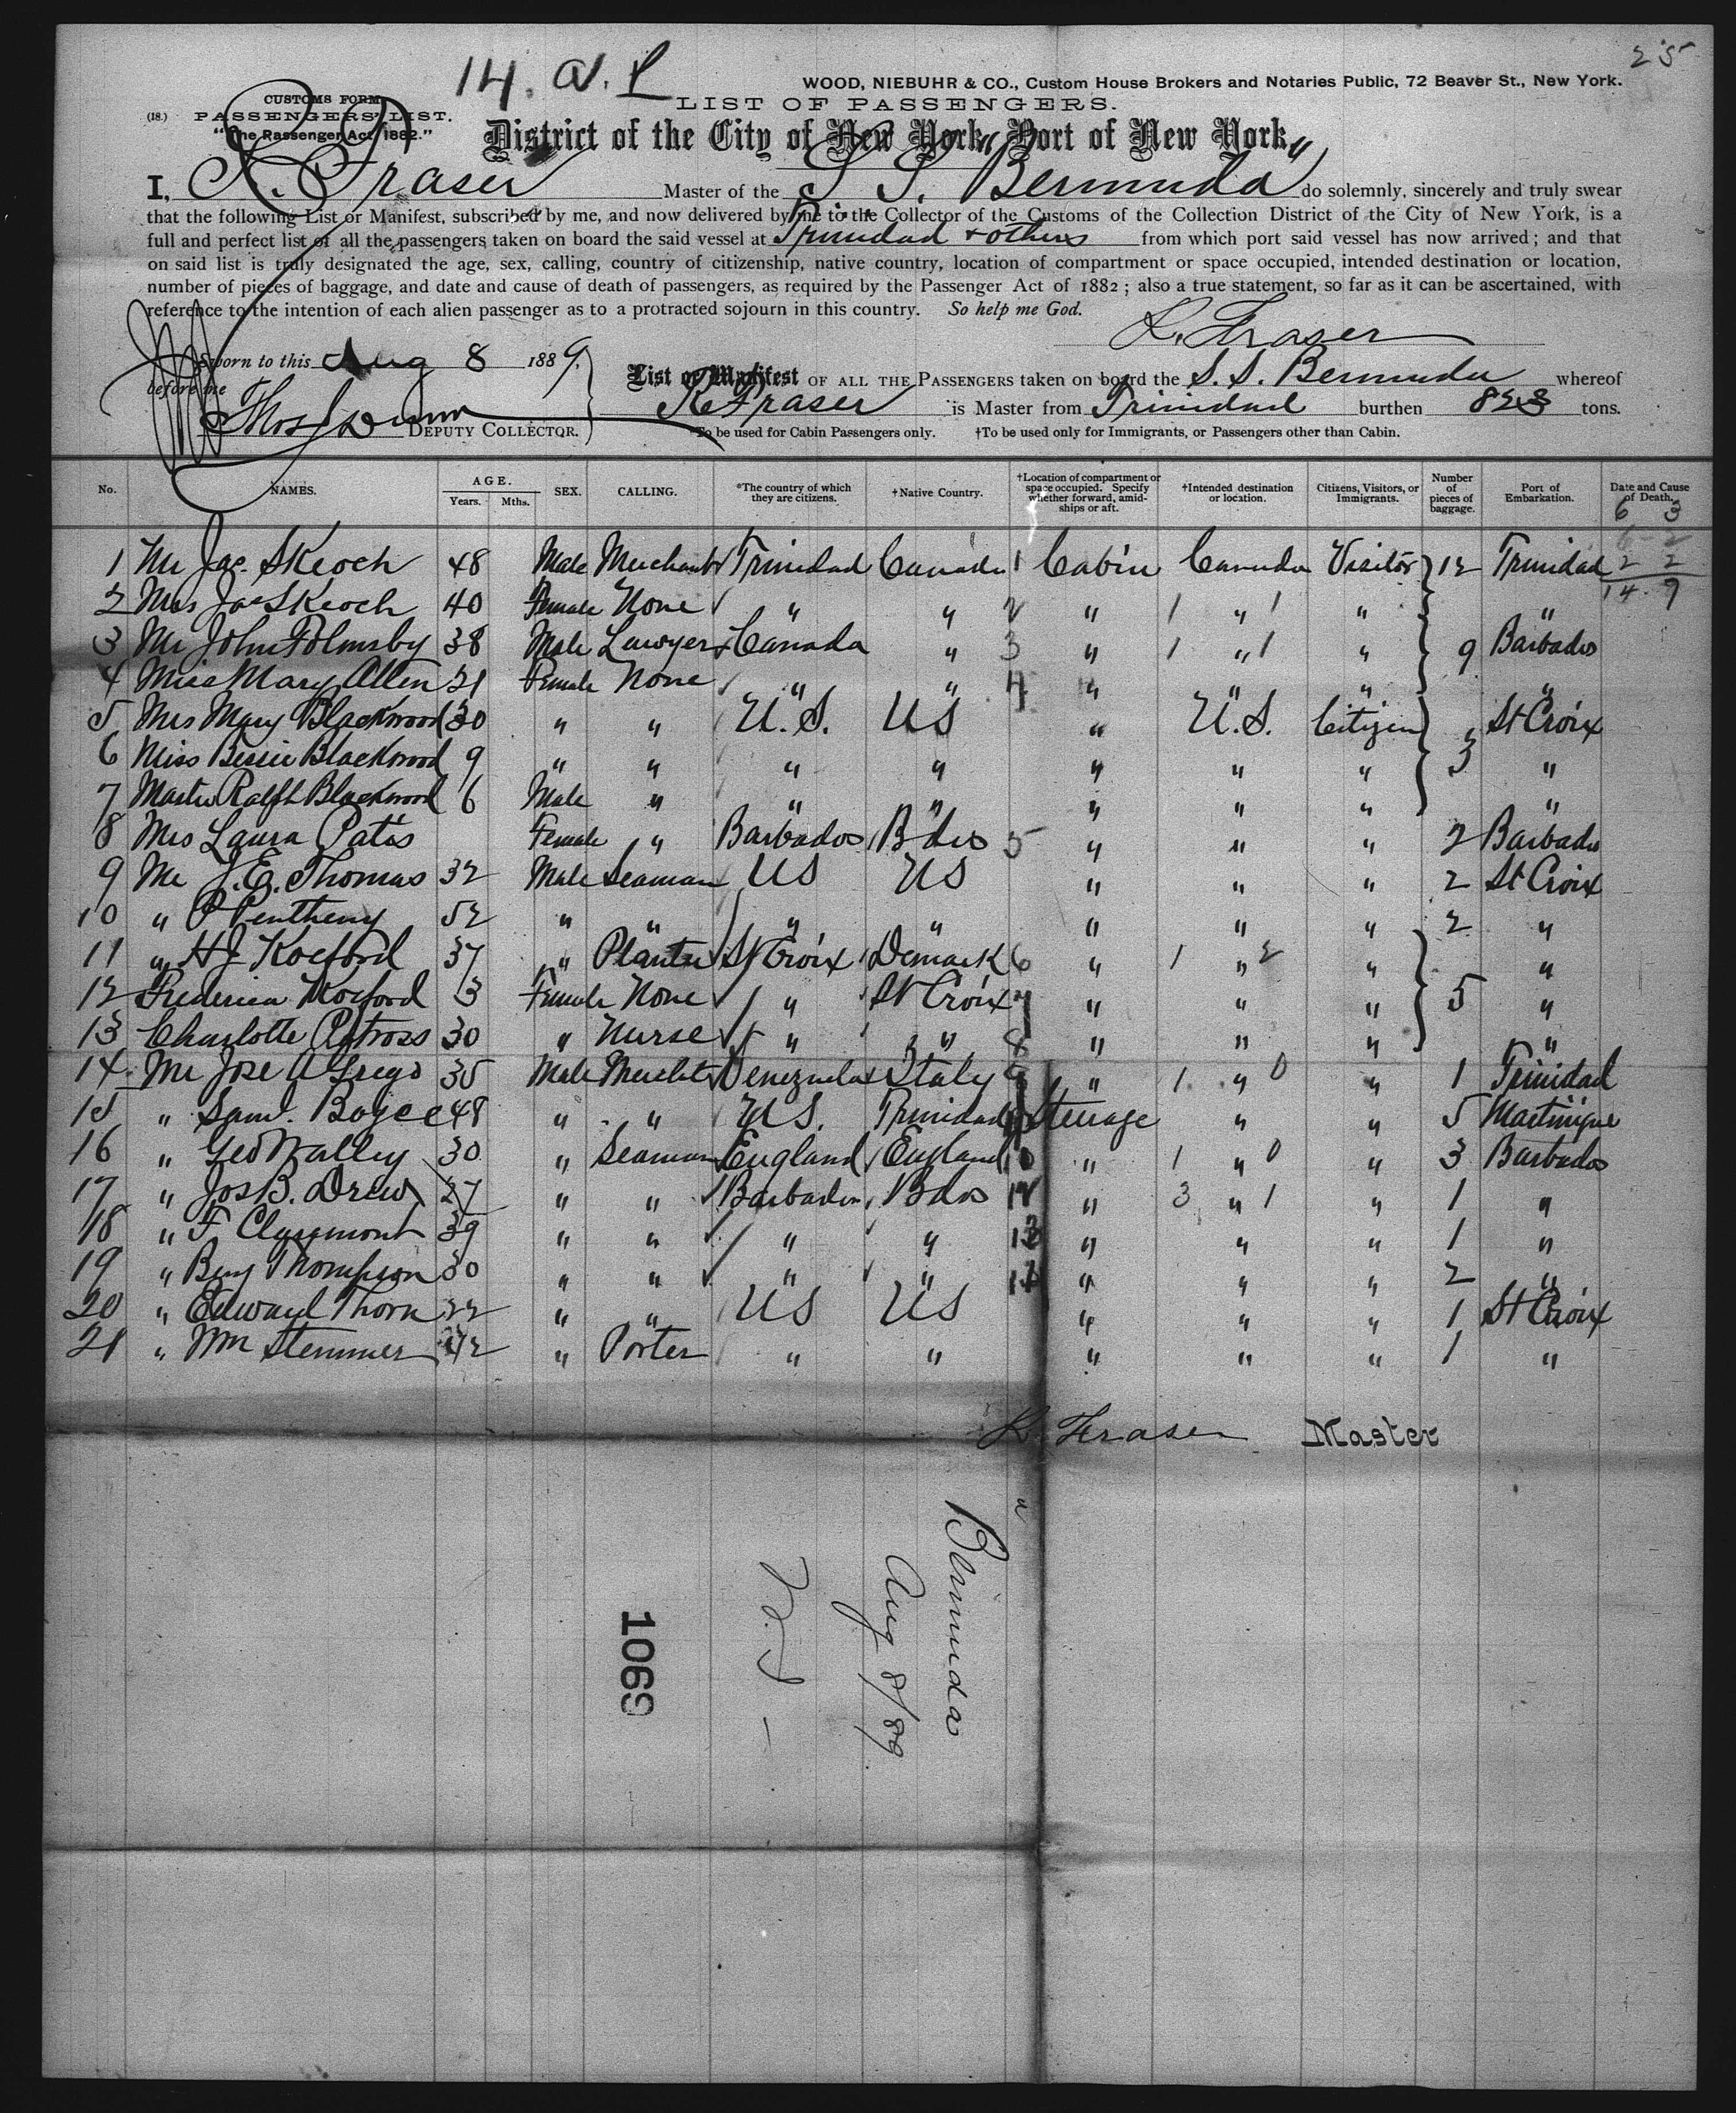 25
14. a. L
WOOD, NIEBUHR & CO., Custom House Brokers and Notaries Public, 72 Beaver St., New York.
(18.) CUSTOMS FORM
PASSENGERS' LIST.
"The Passenger Act, 1882."
LIST OF PASSENGERS.
District of the City of New York, Port of New York,
I, R. Fraser Master of the S S. Bermuda do solemnly, sincerely and truly swear
that the following List or Manifest, subscribed by me, and now delivered by me to the Collector of the Customs of the Collection District of the City of New York, is a
full and perfect list of all the passengers taken on board the said vessel at Trinidad & others from which port said vessel has now arrived; and that
on said list is truly designated the age, sex, calling, country of citizenship, native country, location of compartment or space occupied, intended destination or location,
number of pieces of baggage, and date and cause of death of passengers, as required by the Passenger Act of 1882; also a true statement, so far as it can be ascertained, with
reference to the intention of each alien passenger as to a protracted sojourn in this country. So help me God.
R. Fraser
Sworn to this Aug 8 1889,
before me
Thos Dunn DEPUTY COLLECTOR.
List or Manifest OF ALL THE PASSENGERS taken on board the S. S. Bermuda whereof
R Fraser is Master from Trinidad burthen 828 tons.
*To be used for Cabin Passengers only. †To be used only for Immigrants, or Passengers other than Cabin.
No. NAMES. AGE. Years. Mths. SEX. CALLING. *The country of which they are citizens. †Native Country. †Location of compartment or space occupied. Specify whether forward, amidships or aft. †Intended destination or location. Citizens, Visitors, or Immigrants. Number of pieces of baggage. Port of Embarkation. Date and Cause of Death.
6 3
2 2
14 9
1 Mr Jas. Skeoch 48 Male Merchant Trinidad Canada 1 Cabin Canada Visitor 12 Trinidad
2 Mrs Jas Skeoch 40 Female None " " 2 " 1 " 1 " "
3 Mr John Folmsby 38 Male Lawyer Canada " 3 " 1 " 1 " 9 Barbados
4 Miss Mary Allen 21 Female None " " 4 " " " "
5 Mrs Mary Blackwood 30 " " U.S. US " U.S. Citizen " St Croix
6 Miss Bessie Blackwood 9 " " " " " " " 3 "
7 Master Ralph Blackwood 6 Male " " " " " " "
8 Mrs Laura Patis Female " Barbados B'dos 5 " " " 2 Barbados
9 Mr J.E. Thomas 32 Male Seaman US US " " " 2 St Croix
10 " P Pentheny 52 " " " " " " " 2 "
11 " H J Koeford 37 " Planter St Croix Demark 6 " 1 " 2 " "
12 Frederica Koeford 3 Female None " St Croix 7 " " " 5 "
13 Charlotte 30 " Nurse " " 8 " " " "
14 Mr Jose 35 Male Mercht Venezuela Italy 9 " 1 " 0 " 1 Trinidad
15 " Saml. Boyce 48 " " US. Trinidad Steerage " " 5 Martinique
16 " Geo Walley 30 " Seaman England England " 1 " 0 " 3 Barbados
17 " Jos B. Drew 27 " " Barbados Bdos " 3 " 1 " 1 "
18 " F Clysemont 39 " " " " " " " 1 "
19 " Benj Thompson 30 " " " " " " " 2 "
20 " Edward Thorn 22 " " US US " " " 1 St Croix
21 " Wm Stemmer 42 " Porter " " " " " 1 "
R Fraser Master
Bermuda
Aug 8/89
1069